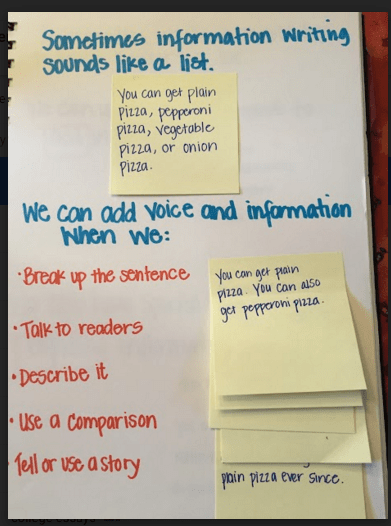 Sometimes information writing
sounds like a list.
You can get plain
pizza, pepperoni
pizza, vegetable
pizza, or onion
pizza.
We can add voice and information
when we:
• Break up the sentence
• Talk to readers
• Describe it
• Use a comparison
Tell or use a story
You can get plain
pizza. You can also
get pepperoni pizza.
plain pizza ever since.